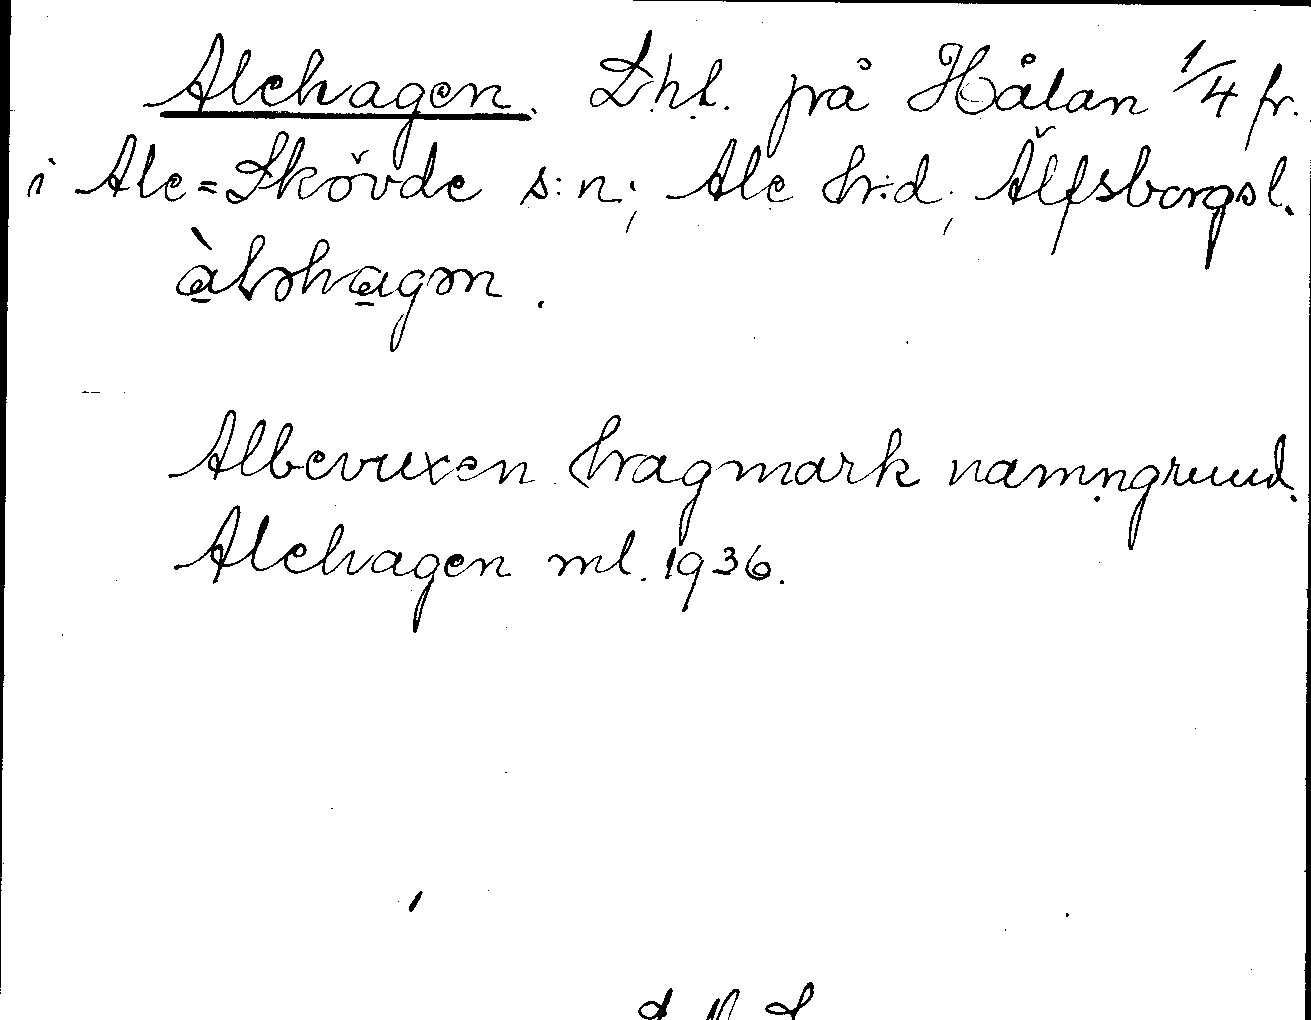 Alehagen. Lhl. på Hålan 1/4 fr.
i Ale=Skövde s:n; Ale hr:d; Älfsborgsl.
àləhagən.
Albevuxen hagmark namngrund.
Alehagen ml. 1936.